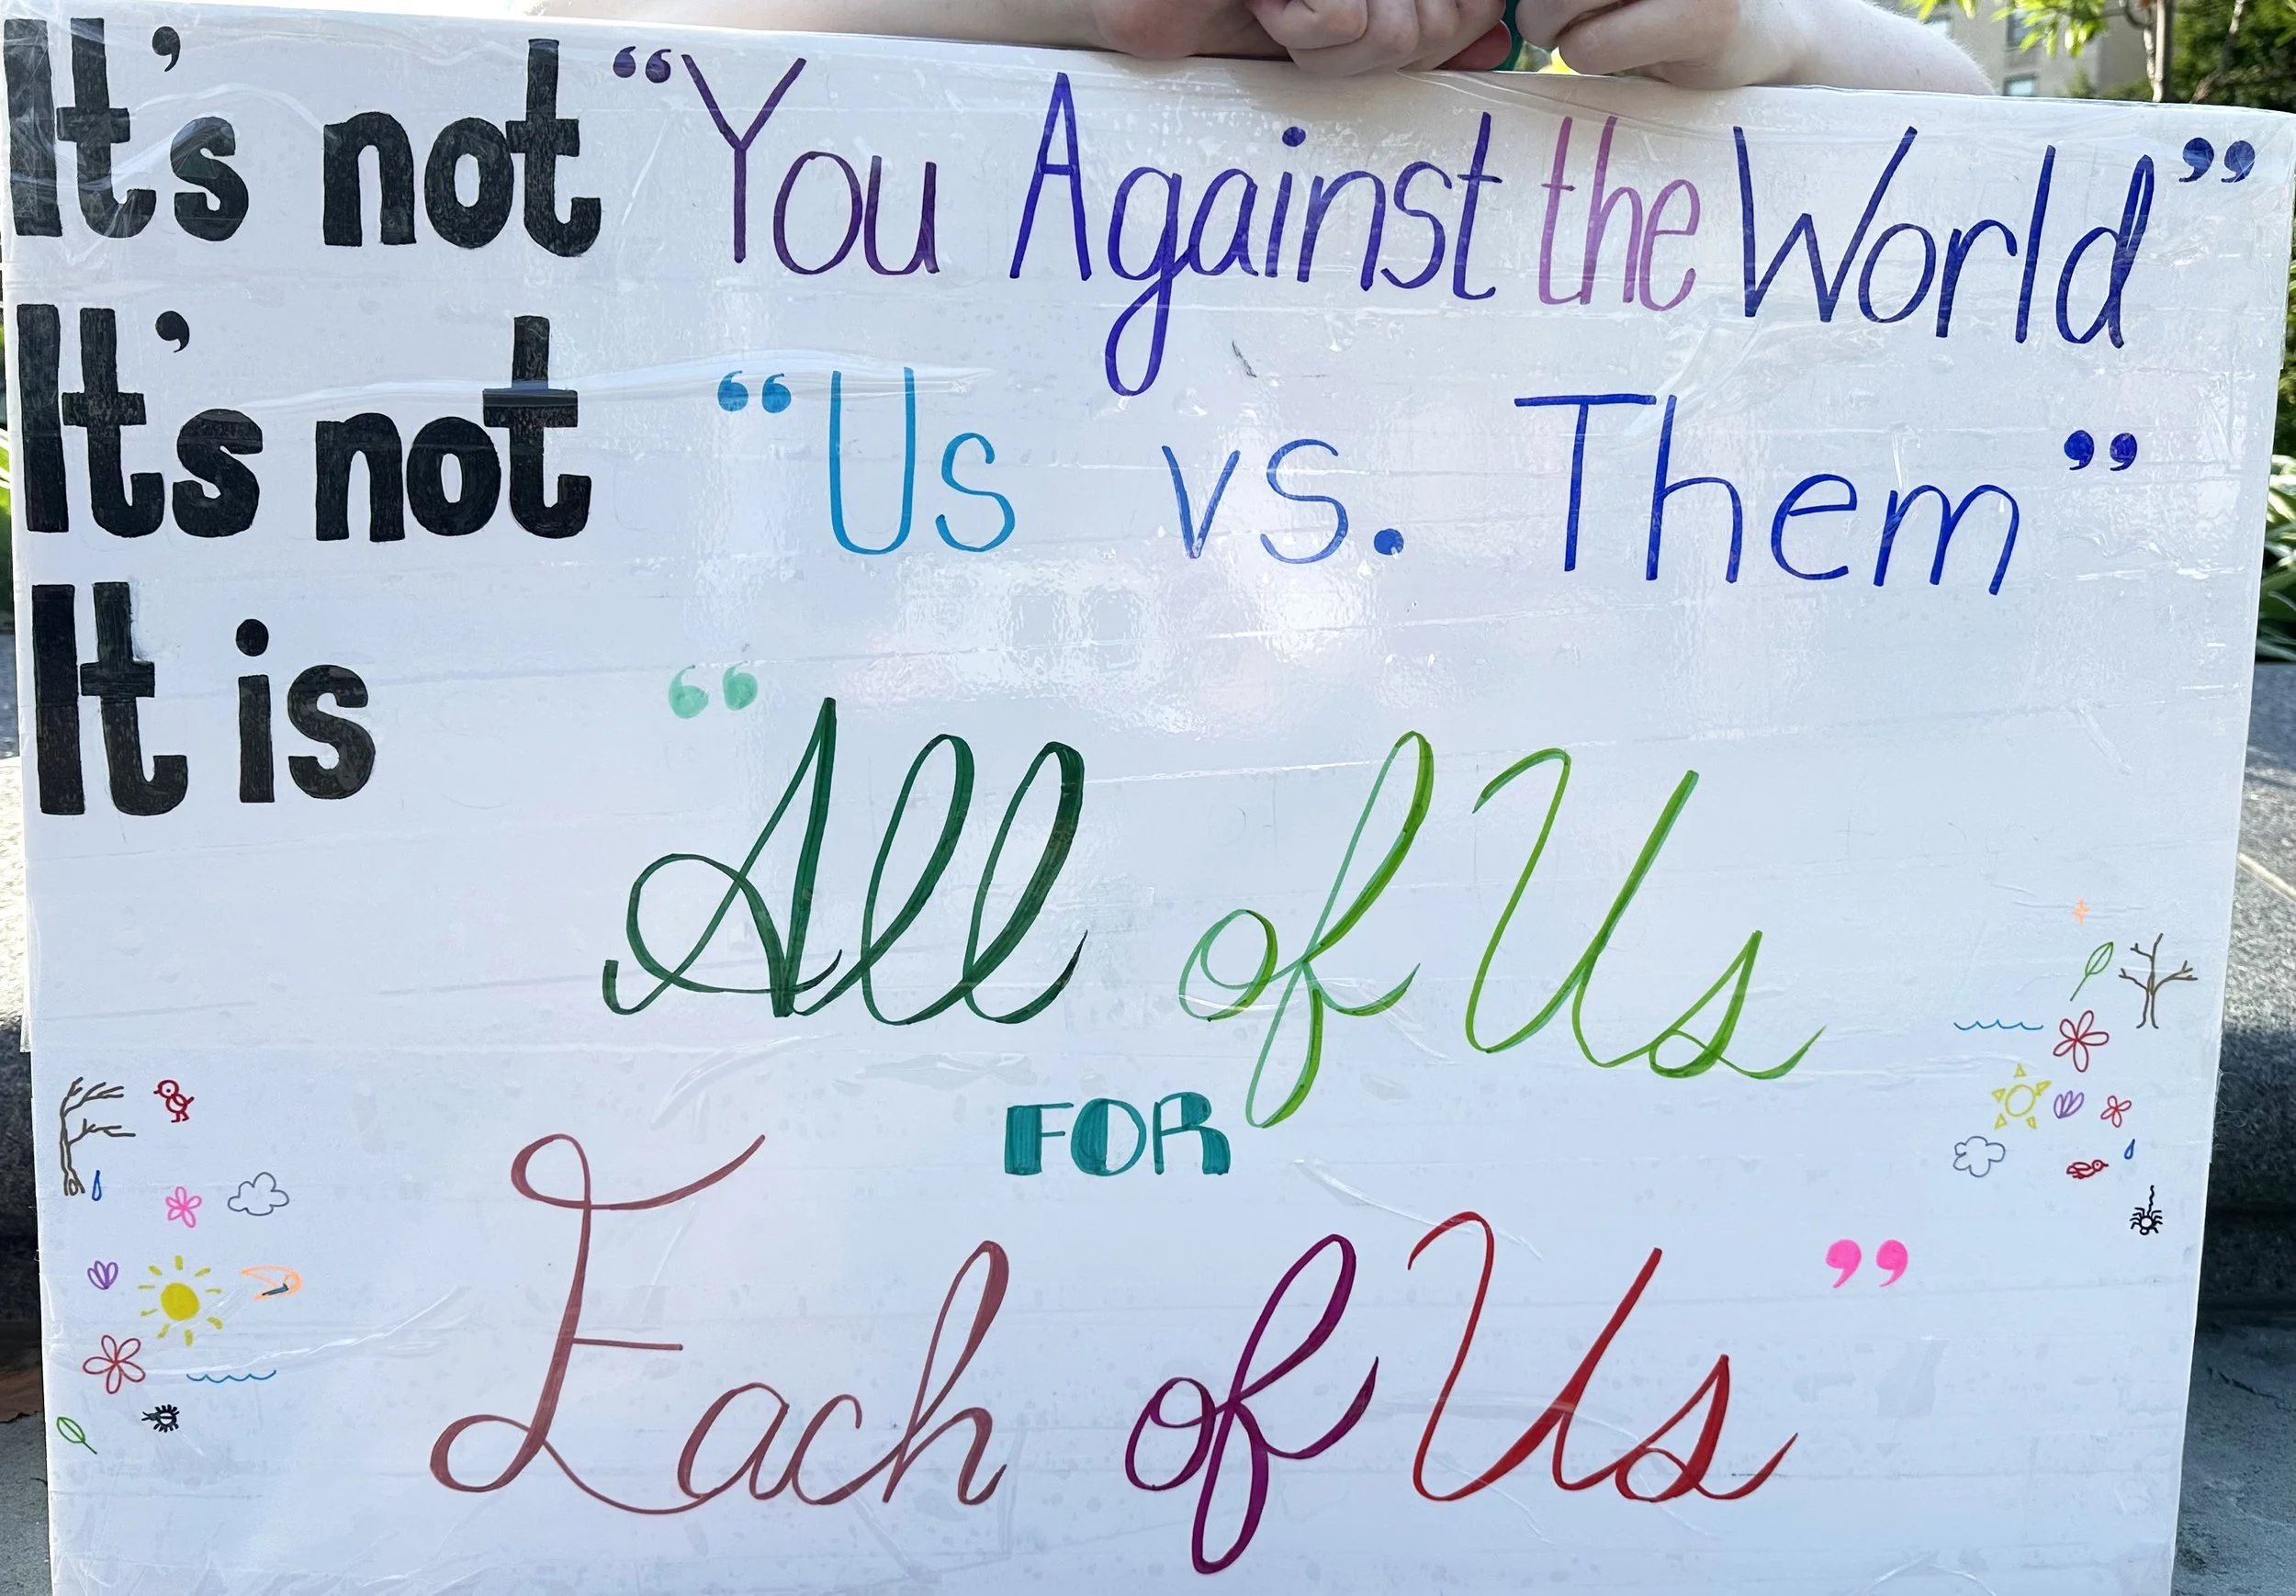 It's not “You Against the World”
It's not “Us vs. Them”
It is
“All of Us
FOR
Each of Us”